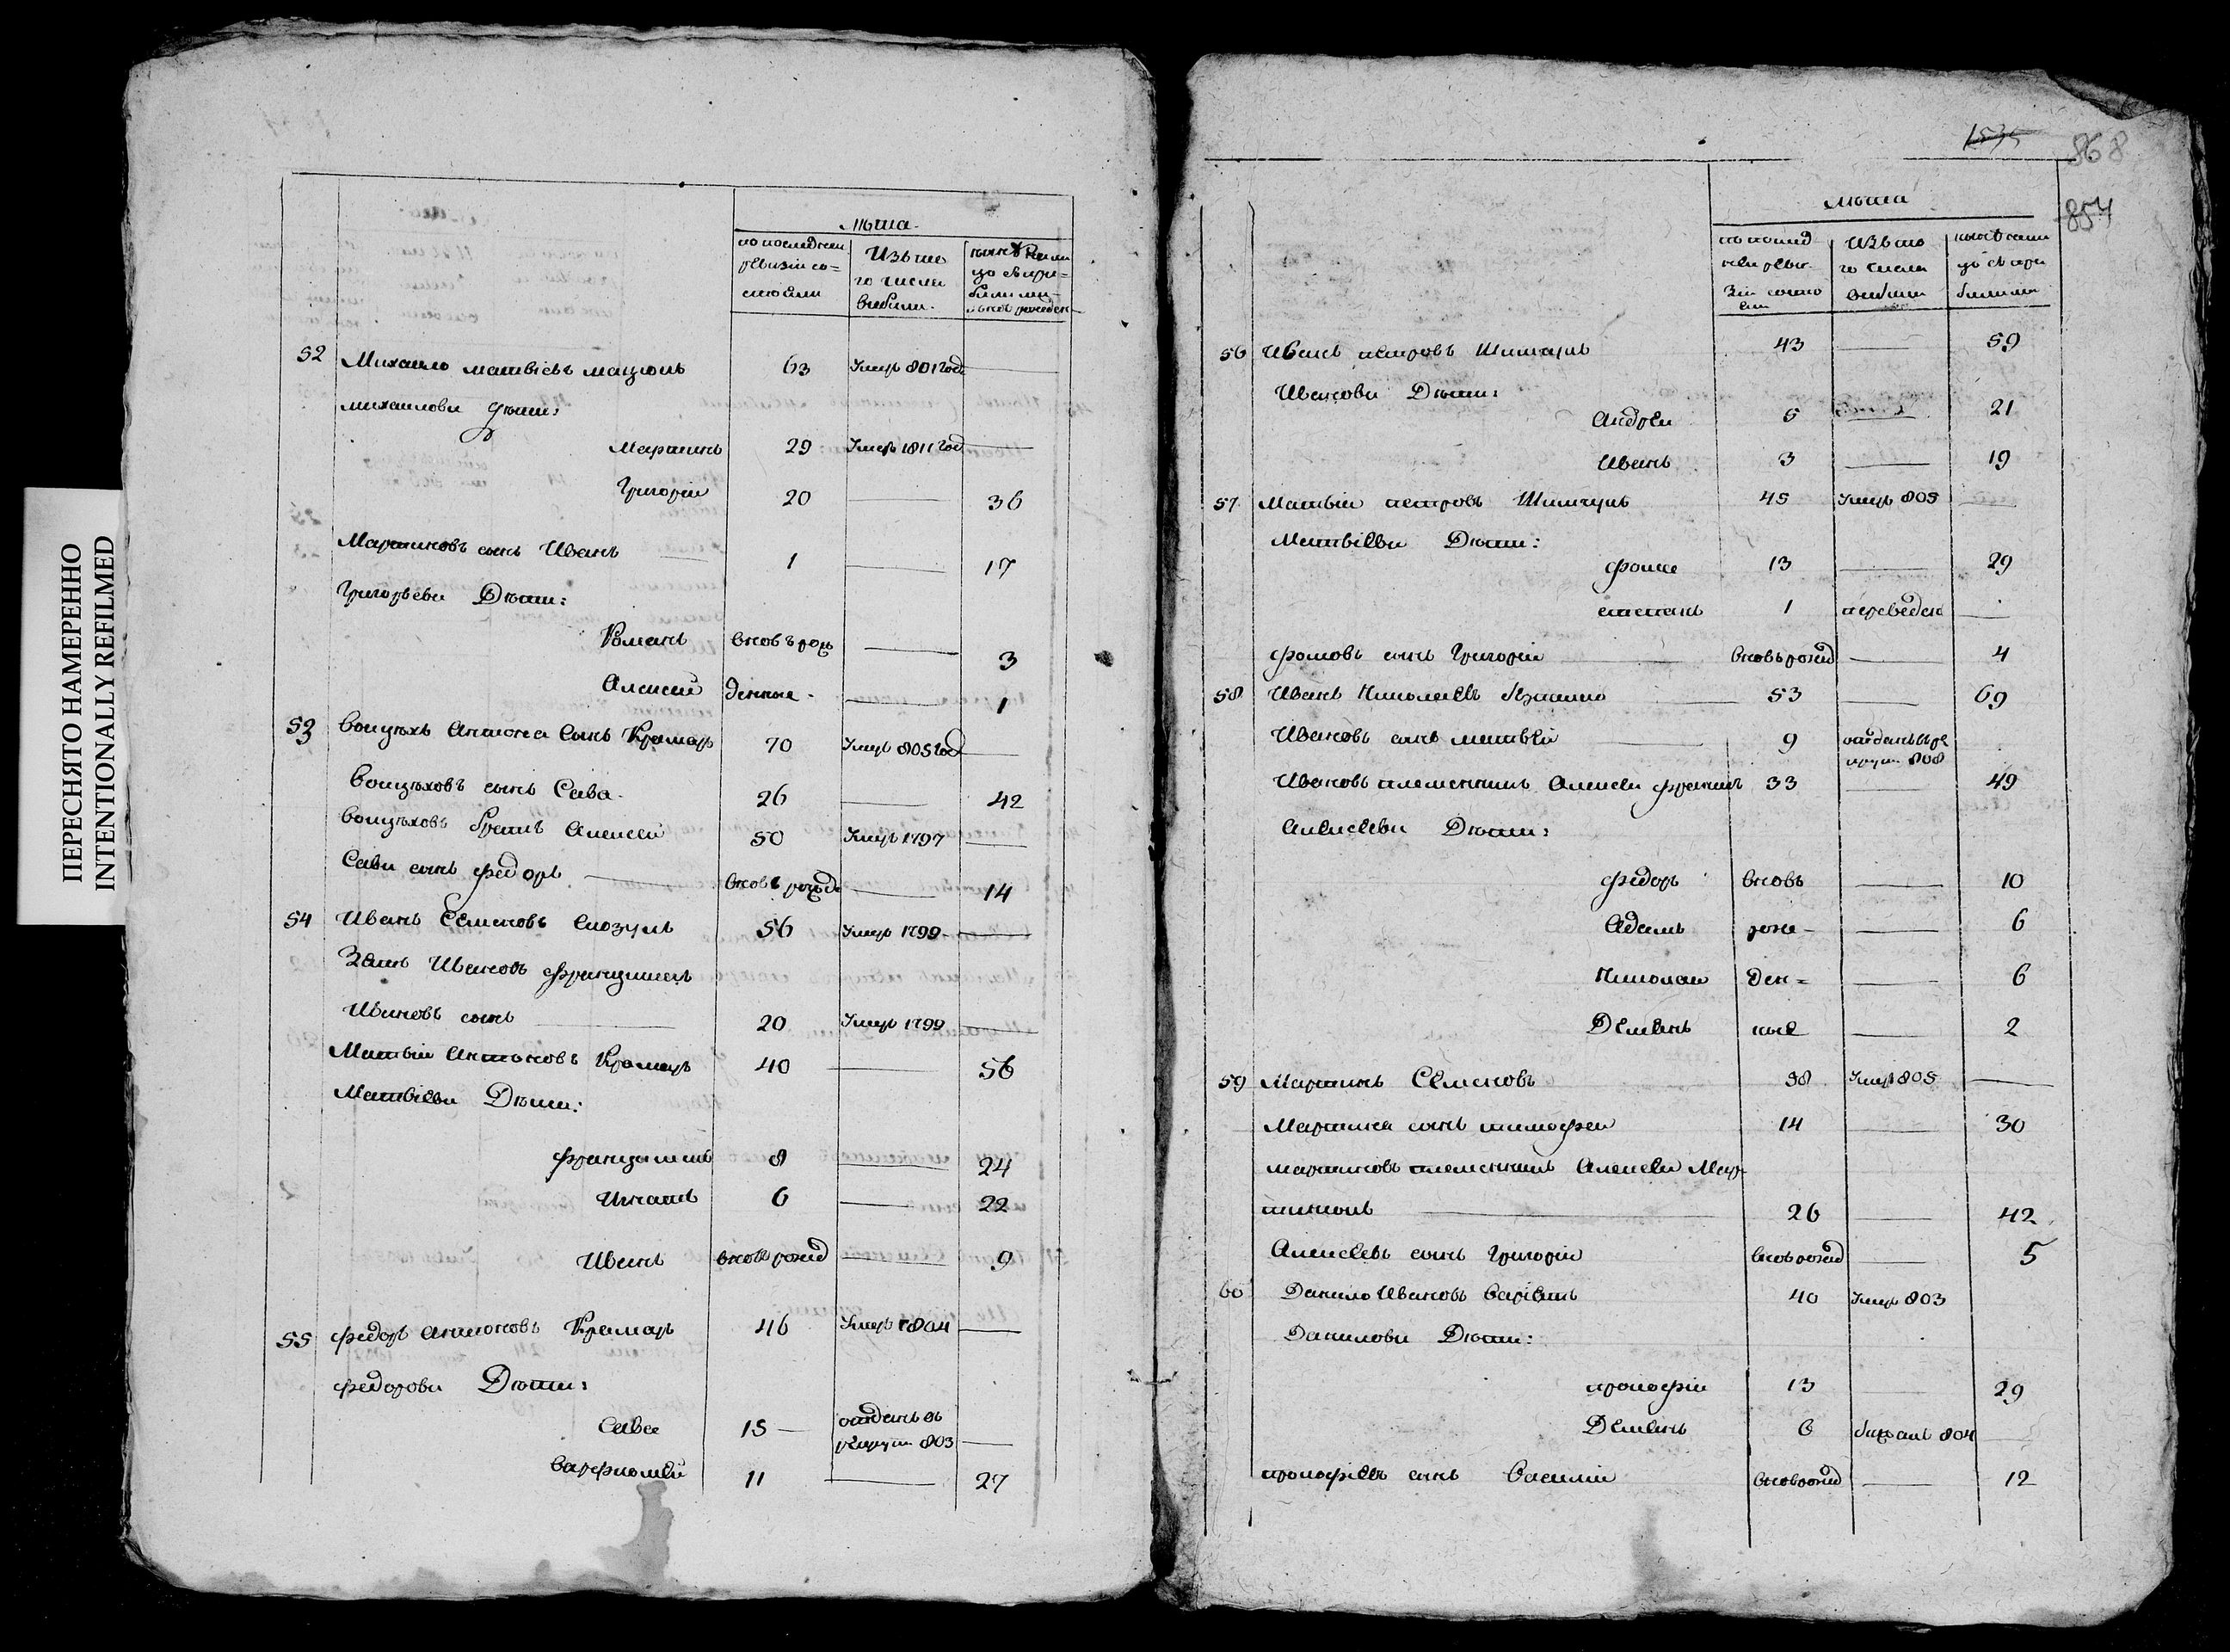 ПЕРЕСНЯТО НАМЕРЕННО
INTENTIONALLY REFILMED
лѣта
по последней ревизіи состояли
Изъ того числа выбыли
52 Михайло матвіевъ мацюкъ 63 Умеръ 801 года
михаилови дѣти:
Мартинъ 29 Умеръ 1811 год
Григорій 20 36
Мартиновъ сынъ Иванъ 1 17
Григорьеви Дѣти:
Романъ вновь рож 3
Алексей денные 1
53 Войцѣхъ Антона Сынъ Крамаръ 70 Умеръ 805 год
Войцѣховъ сынъ Сава 26 42
Войцѣховъ братъ Алексей 50 Умеръ 1797
Сави сынъ федоръ вновь рожде 14
54 Иванъ Семеновъ 56 Умеръ 1799
Зять Ивановъ францишекъ
Ивановъ сынъ 20 Умеръ 1799
Матвій Антоновъ Крамаръ 40 56
Матвіеви Дѣти:
францишекъ 8 24
Игнатъ 6 22
Иванъ вновь рожд 9
55 федоръ антоновъ Крамаръ 46 Умеръ 1804
федорови Дѣти:
Савва 15 отданъ въ
рекруты 803
варфломей 11 27
1535
868
854
лѣта
по послед ней реви зіи состо яли
изъ то го числа выбыли
56 Иванъ петровъ 43 59
Иванови Дѣти:
Андрей 5 21
Иванъ 3 19
57 Матвій петровъ 45 Умеръ 805
Матвіеви Дѣти:
фома 13 29
степанъ 1 переведен
фомовъ сынъ Григорій вновь рожд 4
58 Иванъ Николаевъ 53 69
Ивановъ сынъ матвей 9 отданъ въ ре
круты 808
Ивановъ племенникъ Алексей 33 49
Алексееви Дѣти:
федоръ вновь 10
Адамъ рож- 6
Николай ден= 6
Демянъ ные 2
59 Мартинъ Семеновъ 38 Умеръ 805
Мартина сынъ тимофей 14 30
мартиновъ племенникъ Алексей Мар
тинюкъ 26 42
Алексеевъ сынъ Григорій вновь рожд 5
60 Данило Ивановъ 40 Умеръ 803
Данилови Дѣти:
прокофій 13 29
Демянъ 6 бижалъ 804
прокофіевъ сынъ Василій вновь рожд 12